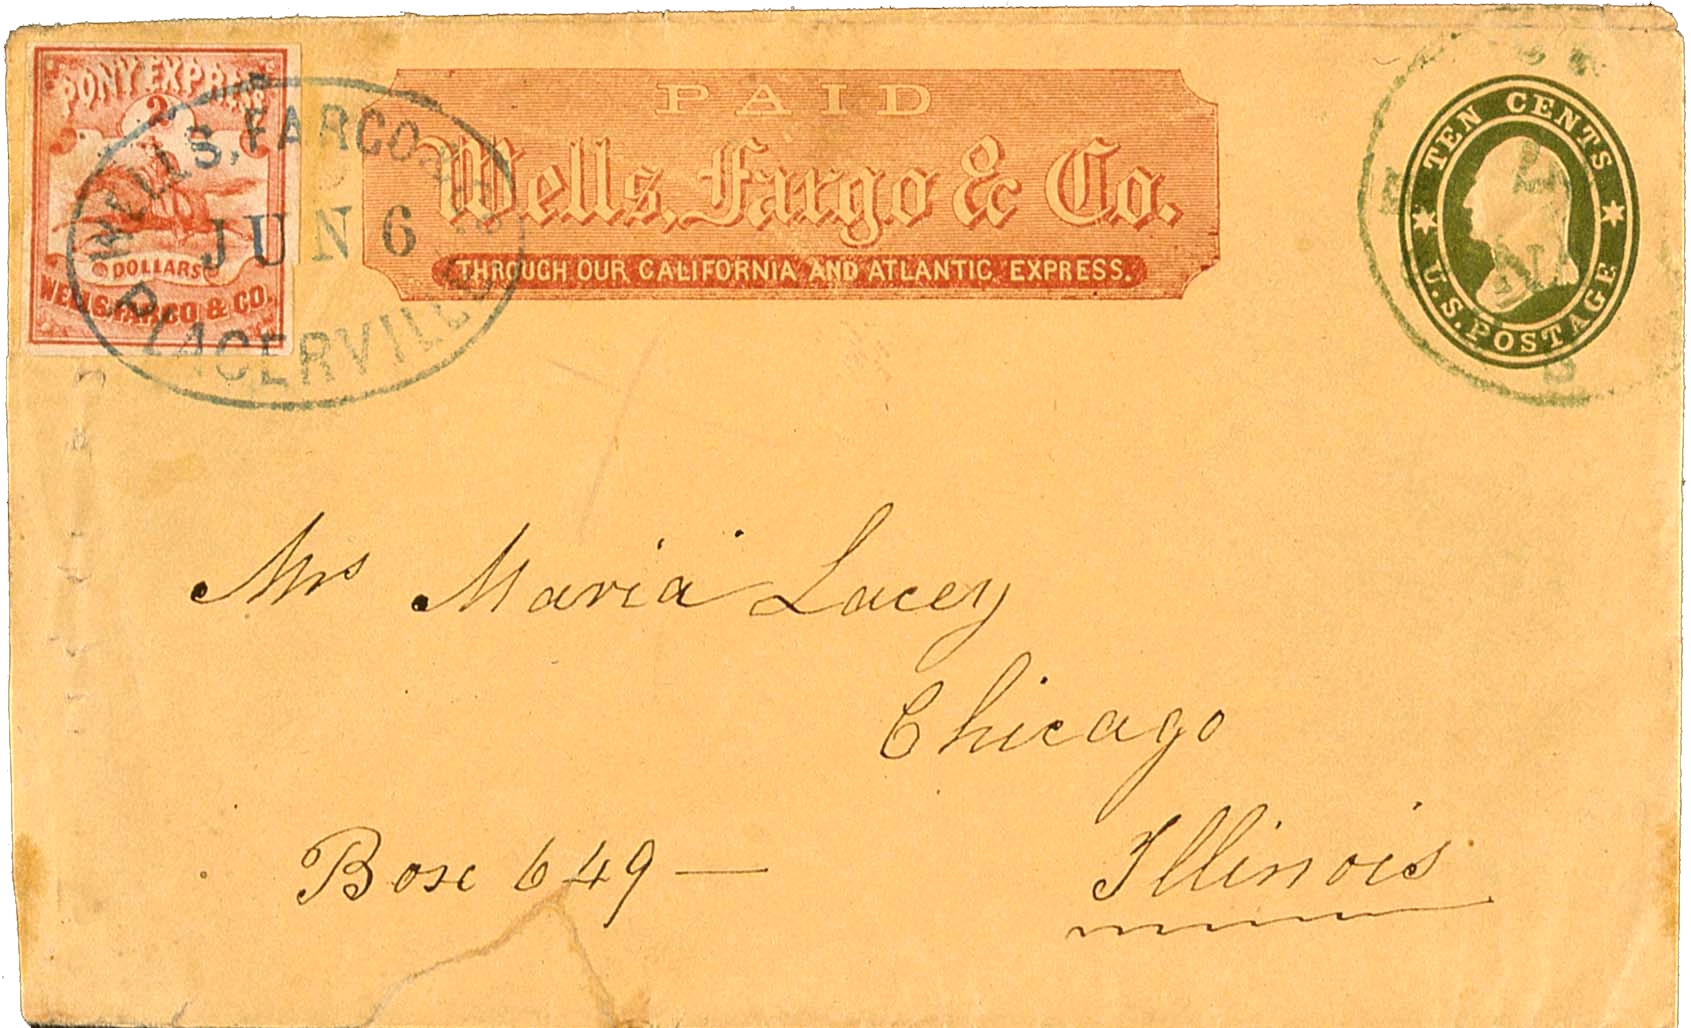 PONY EXPRESS
2
DOLLARS
WELLS, FARGO & CO.
WELLS, FARGO & CO.
JUN 6
PLACERVILLE
PAID
Wells, Fargo & Co.
THROUGH OUR CALIFORNIA AND ATLANTIC EXPRESS.
TEN CENTS
U.S. POSTAGE
Mrs Maria Lacey
Chicago
Box 649 — Illinois